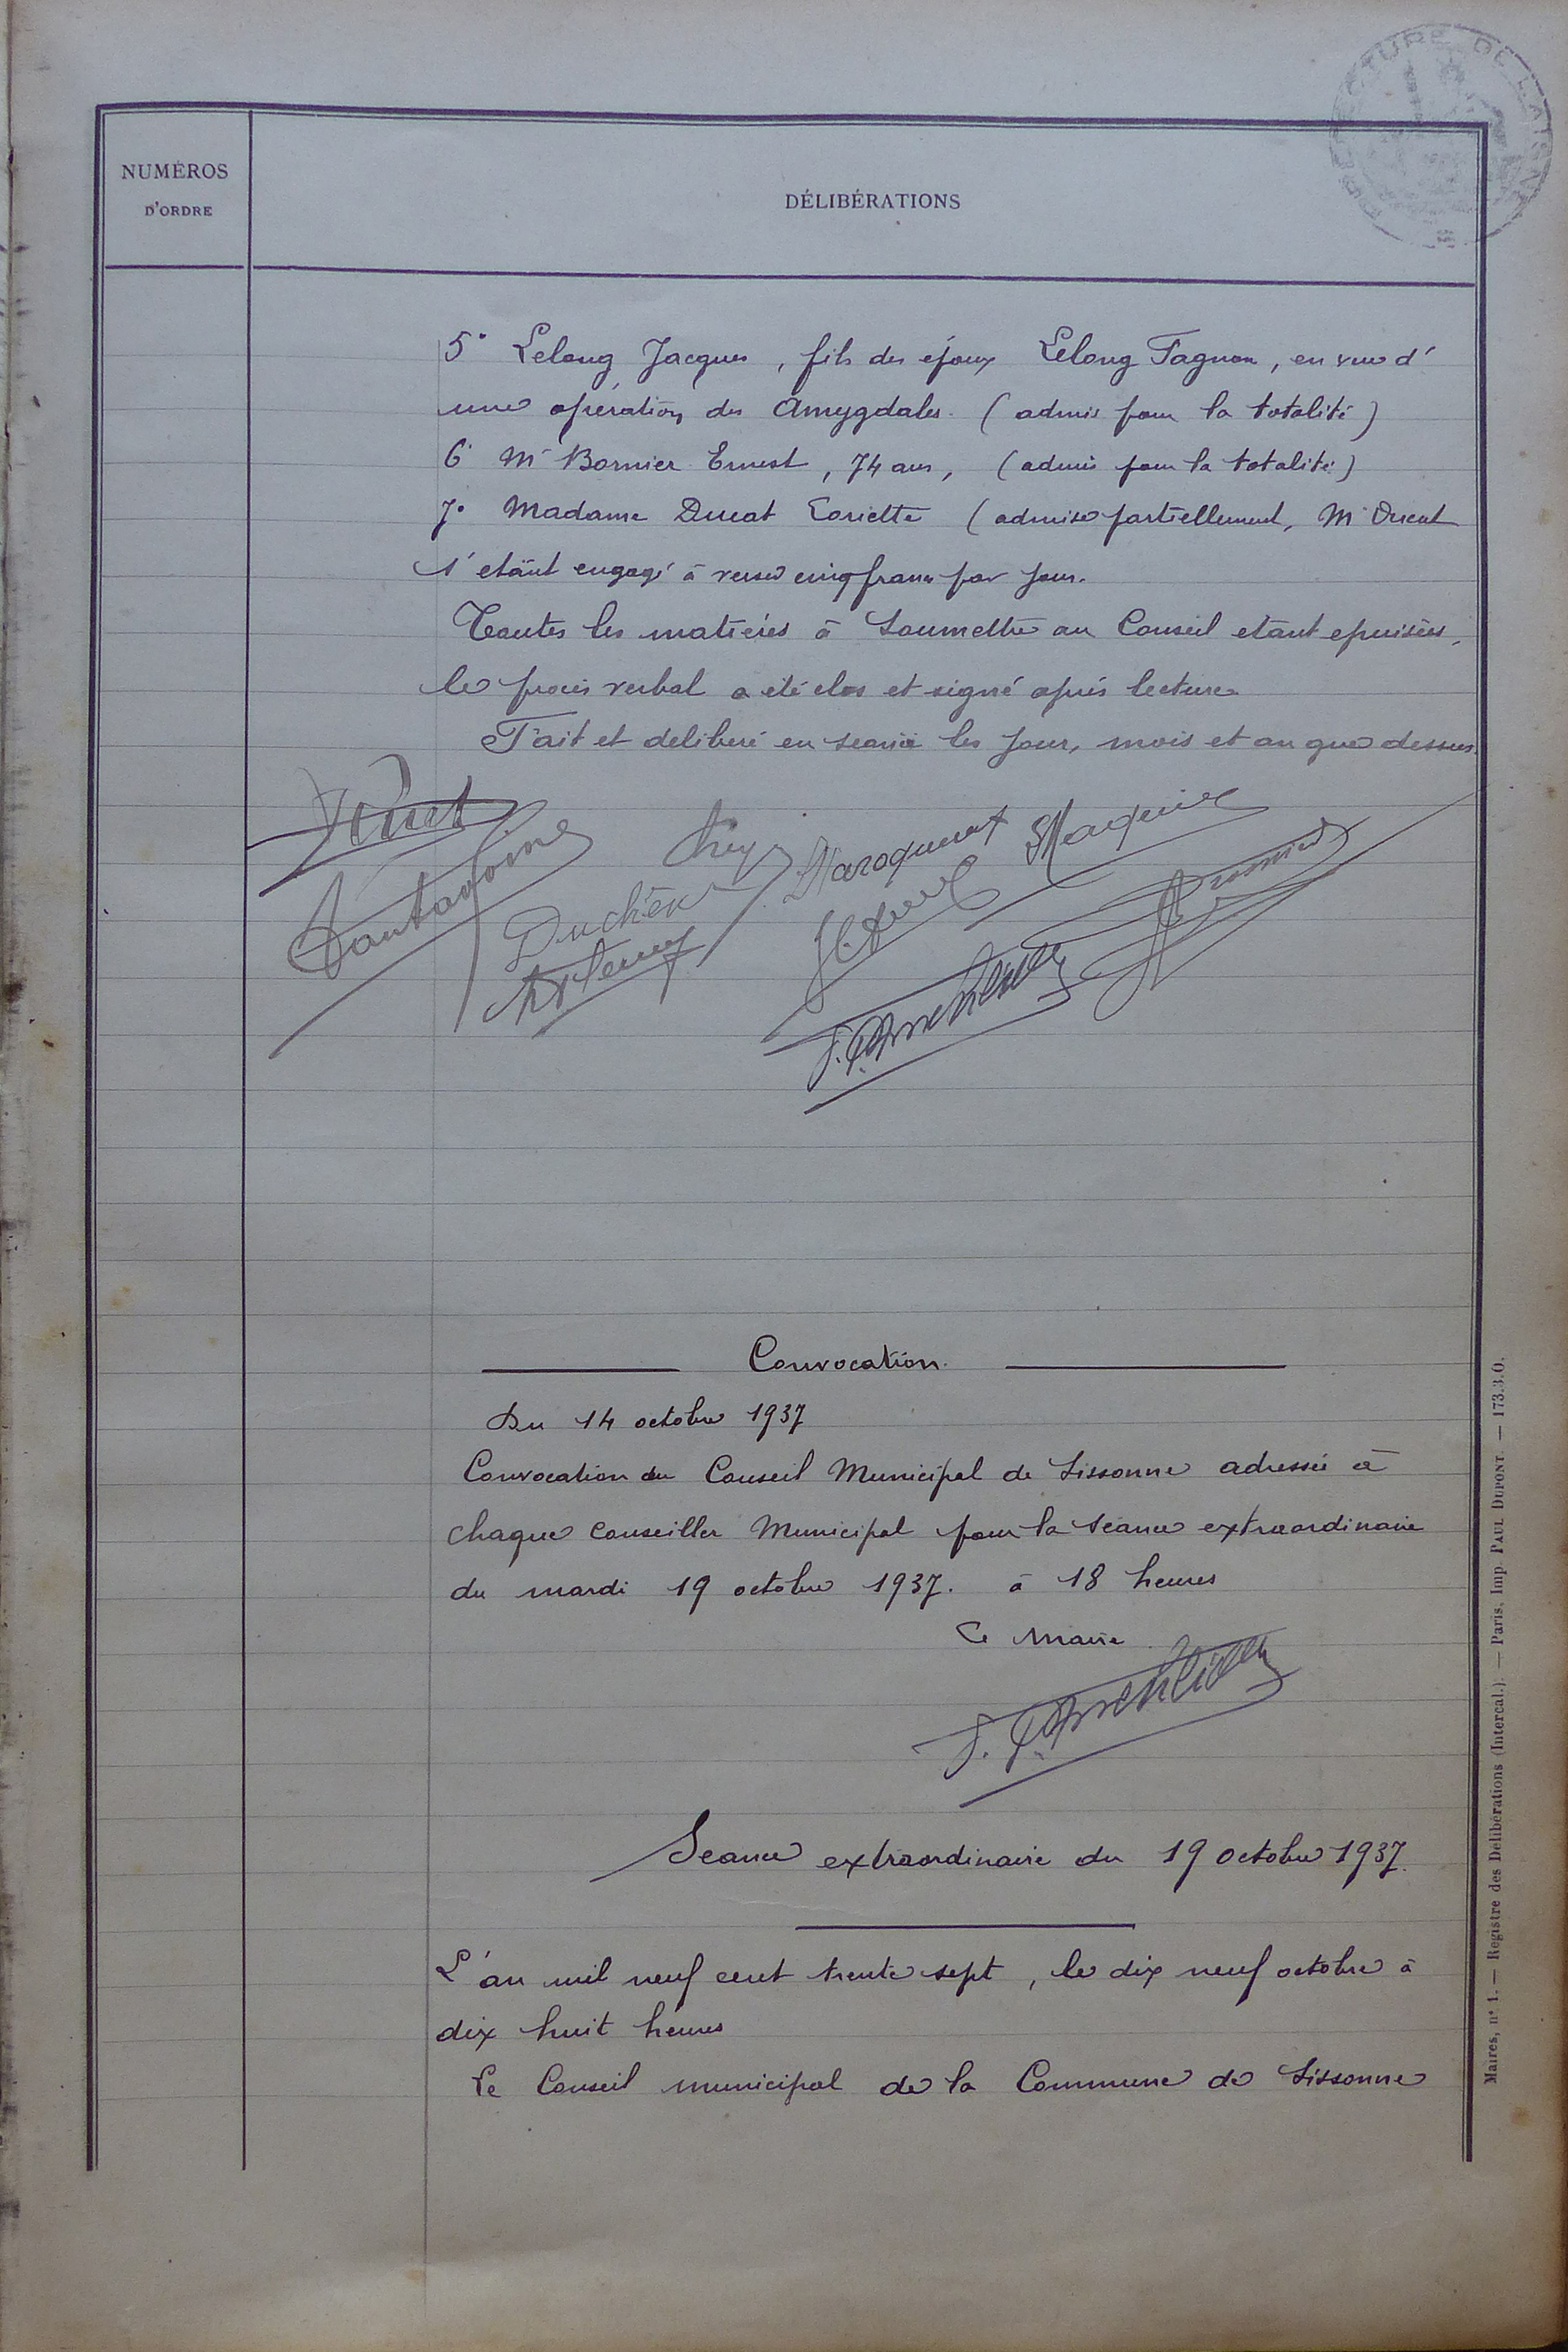 PRÉFECTURE DE L'AISNE
NUMÉROS
D'ORDRE
DÉLIBÉRATIONS
5° Lelong Jacques, fils des époux Lelong Fagnon, en vue d'
une opération des Amygdales (admis pour la totalité)
6° Mr Bornier Ernest, 74 ans, (admis pour la totalité)
7° Madame Ducat (admise partiellement, Mr Ducat
s'etant engagé à verser cinq francs par jour.
Toutes les matières à Soumettre au Conseil etant epuisées,
le procès verbal a été clos et signé après lecture
Fait et deliberé en seance les Jour, mois et an que dessus.
Convocation.
Du 14 octobre 1937
Convocation du Conseil Municipal de Sissonne adressée à
chaque Conseiller Municipal pour la séance extraordinaire
du mardi 19 octobre 1937. à 18 heures
Le Maire
Seance extraordinaire du 19 octobre 1937.
L'an mil neuf cent trente sept, le dix neuf octobre à
dix huit heures
Le Conseil municipal de la Commune de Sissonne
Maires, n° 1. — Registre des Délibérations (Intercal.). — Paris, Imp. PAUL DUPONT. — 173.3.O.